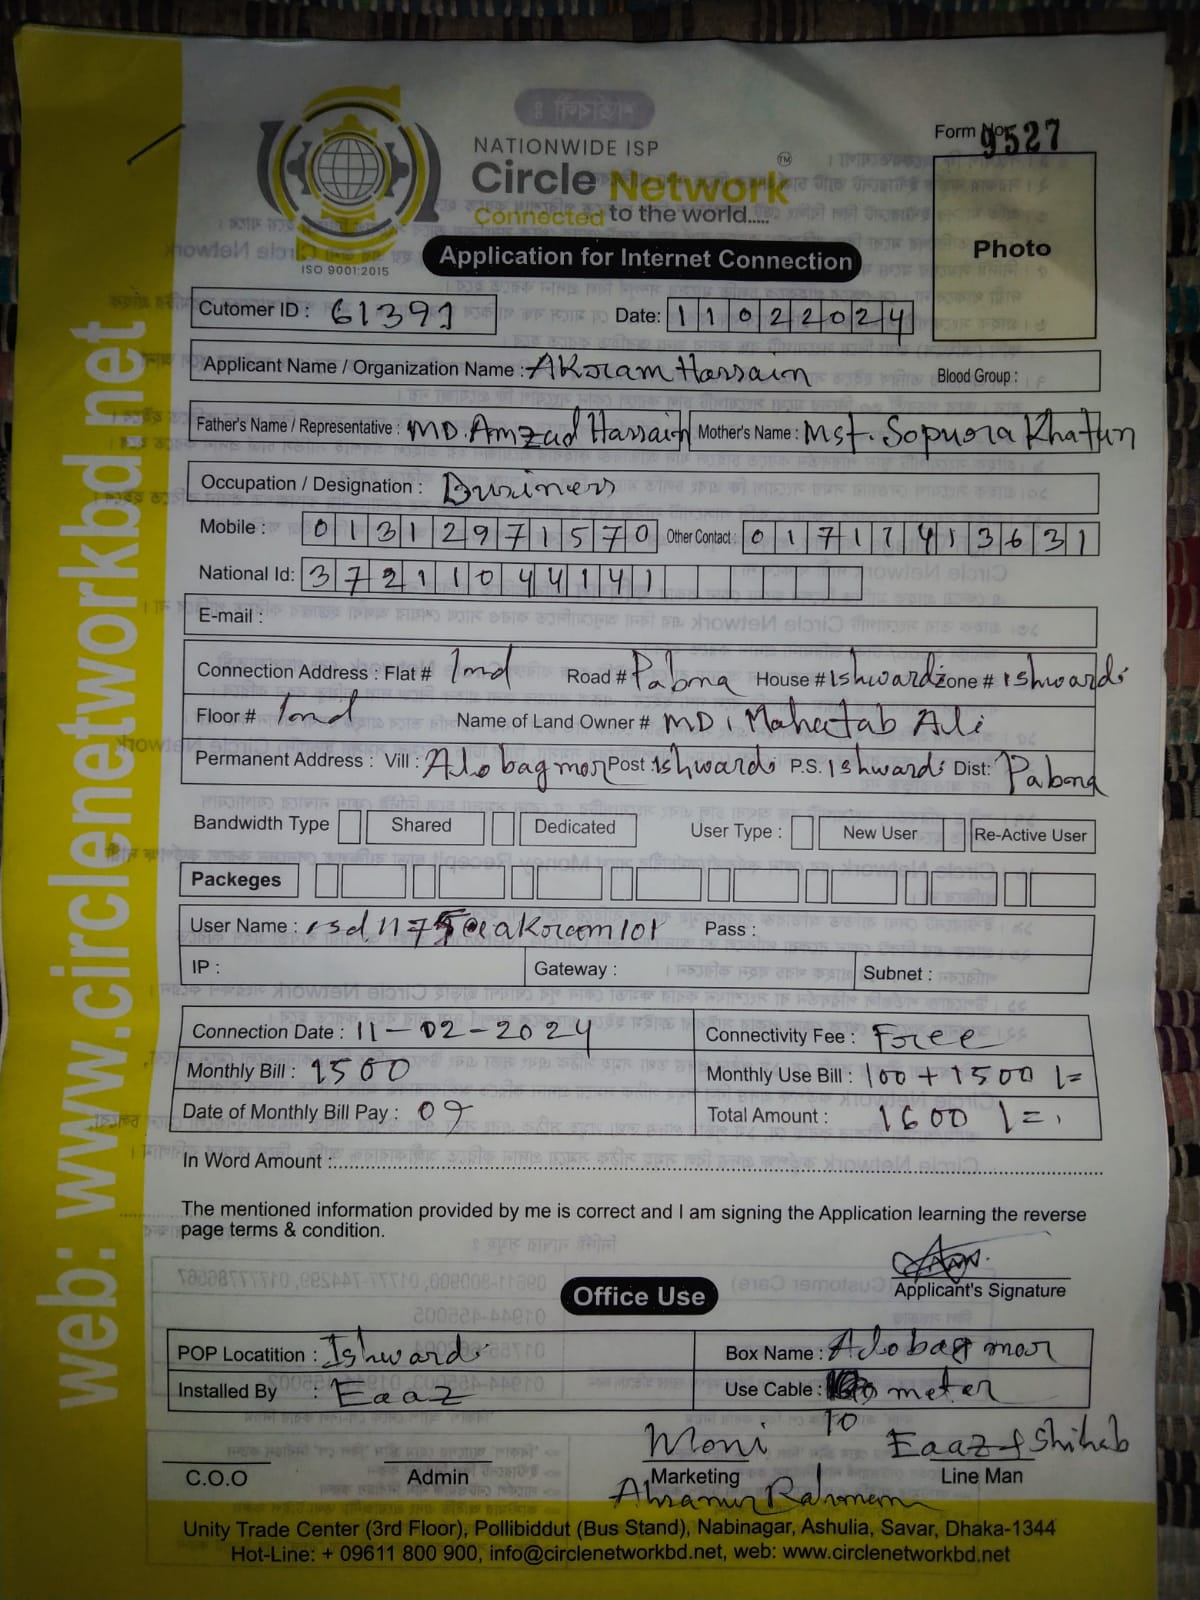 Form No. 9527
NATIONWIDE ISP
Circle Network TM
Connected to the world.....
ISO 9001:2015
Application for Internet Connection
Photo
Cutomer ID : 61391 Date: 11022024
Applicant Name / Organization Name : Akram Hossain Blood Group :
Father's Name / Representative : MD. Amzad Hassain Mother's Name : Mst. Sopura Khatun
Occupation / Designation : Business
Mobile : 01312971570 Other Contact : 01717413631
National Id: 3721104414 1
E-mail :
Connection Address : Flat # 1nd Road # Pabna House # Ishwardi Zone # Ishwardi
Floor # 1nd Name of Land Owner # MD. Mahatab Ali
Permanent Address : Vill : Alobagmor Post : Ishwardi P.S. Ishwardi Dist: Pabna
Bandwidth Type Shared Dedicated User Type : New User Re-Active User
Packeges
User Name : akram101 Pass :
IP : Gateway : Subnet :
Connection Date : 11-02-2024 Connectivity Fee : Free
Monthly Bill : 1500 Monthly Use Bill : 100 + 1500 /=
Date of Monthly Bill Pay : 07 Total Amount : 1600 /=
In Word Amount :
The mentioned information provided by me is correct and I am signing the Application learning the reverse
page terms & condition.
Applicant's Signature
Office Use
POP Locatition : Ishwardi Box Name : Alobag mor
Installed By : Eaaz Use Cable : meter
10
Moni Eaaz & Shihab
C.O.O Admin Marketing Line Man
Rahman
Unity Trade Center (3rd Floor), Pollibiddut (Bus Stand), Nabinagar, Ashulia, Savar, Dhaka-1344
Hot-Line: + 09611 800 900, info@circlenetworkbd.net, web: www.circlenetworkbd.net
web: www.circlenetworkbd.net